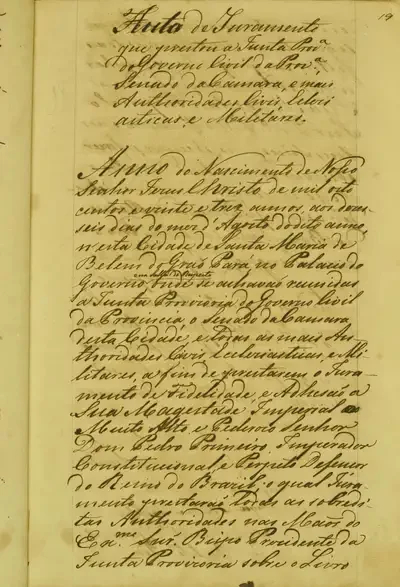 19
Auto de Juramento
que prestou a Junta Prov.ª
do Governo Civil da Prov.ª,
Senado da Camara, e mais
Authoridades Civis, Eclesi
asticas, e Militares.
Anno do Nascimento de Nosso
Senhor Jesus Christo de mil oito
centos e vinte e tres annos, aos deses-
seis dias do mez d'Agosto do dito anno
n'esta Cidade de Santa Maria de
Belem do Grão Pará, no Palacio do
Governo, onde se achavão reunidas
a Junta Provisoria do Governo Civil
da Provincia, o Senado da Camara
desta Cidade, e todas as mais Au-
thoridades Civis, Eclesiasticas, e Mi-
litares, a fim de prestarem o Jura-
mento de Fidelidade, e Adhesão a
Sua Magestade Imperial o
Muito Alto e Poderoso Senhor
Dom Pedro Primeiro, Imperador
Constitucional, e Perpetuo Defensor
do Reino do Brazil; o qual Jura-
mento prestarão todas as sobredi-
tas Authoridades nas Mãos do
Ex.mo Snr. Bispo Prezidente da
Junta Provisoria sobre o Livro